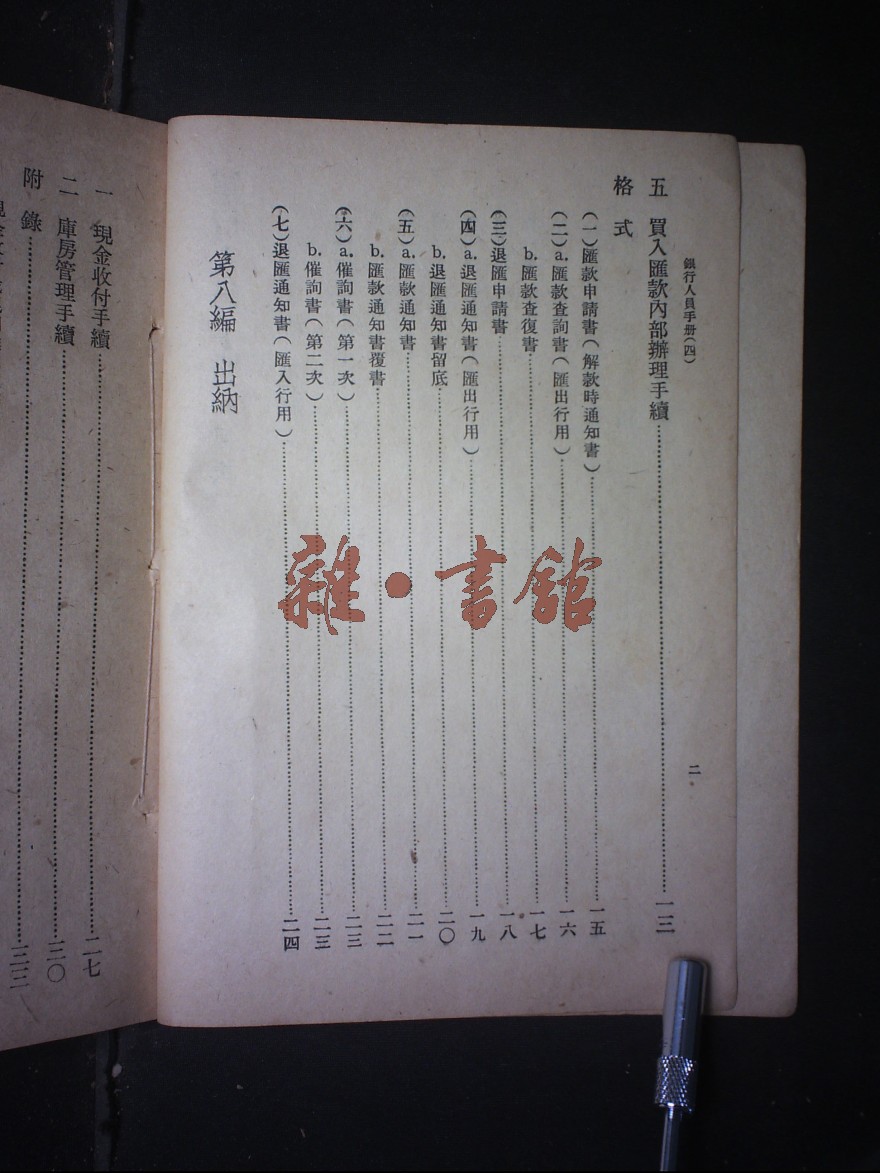 銀行人員手册(四)
二
五 買入匯款內部辦理手續 一三
格式
(一)匯款申請書(解款時通知書) 一五
(二)a.匯款查詢書(匯出行用) 一六
b.匯款查復書 一七
(三)退匯申請書 一八
(四)a.退匯通知書(匯出行用) 一九
b.退匯通知書留底 二〇
(五)a.匯款通知書 二一
b.匯款通知書覆書 二二
(六)a.催詢書(第一次) 二三
b.催詢書(第二次) 二三
(七)退匯通知書(匯入行用) 二四
第八編 出納
一 現金收付手續 二七
二 庫房管理手續 三〇
附錄 三三
雜·書館